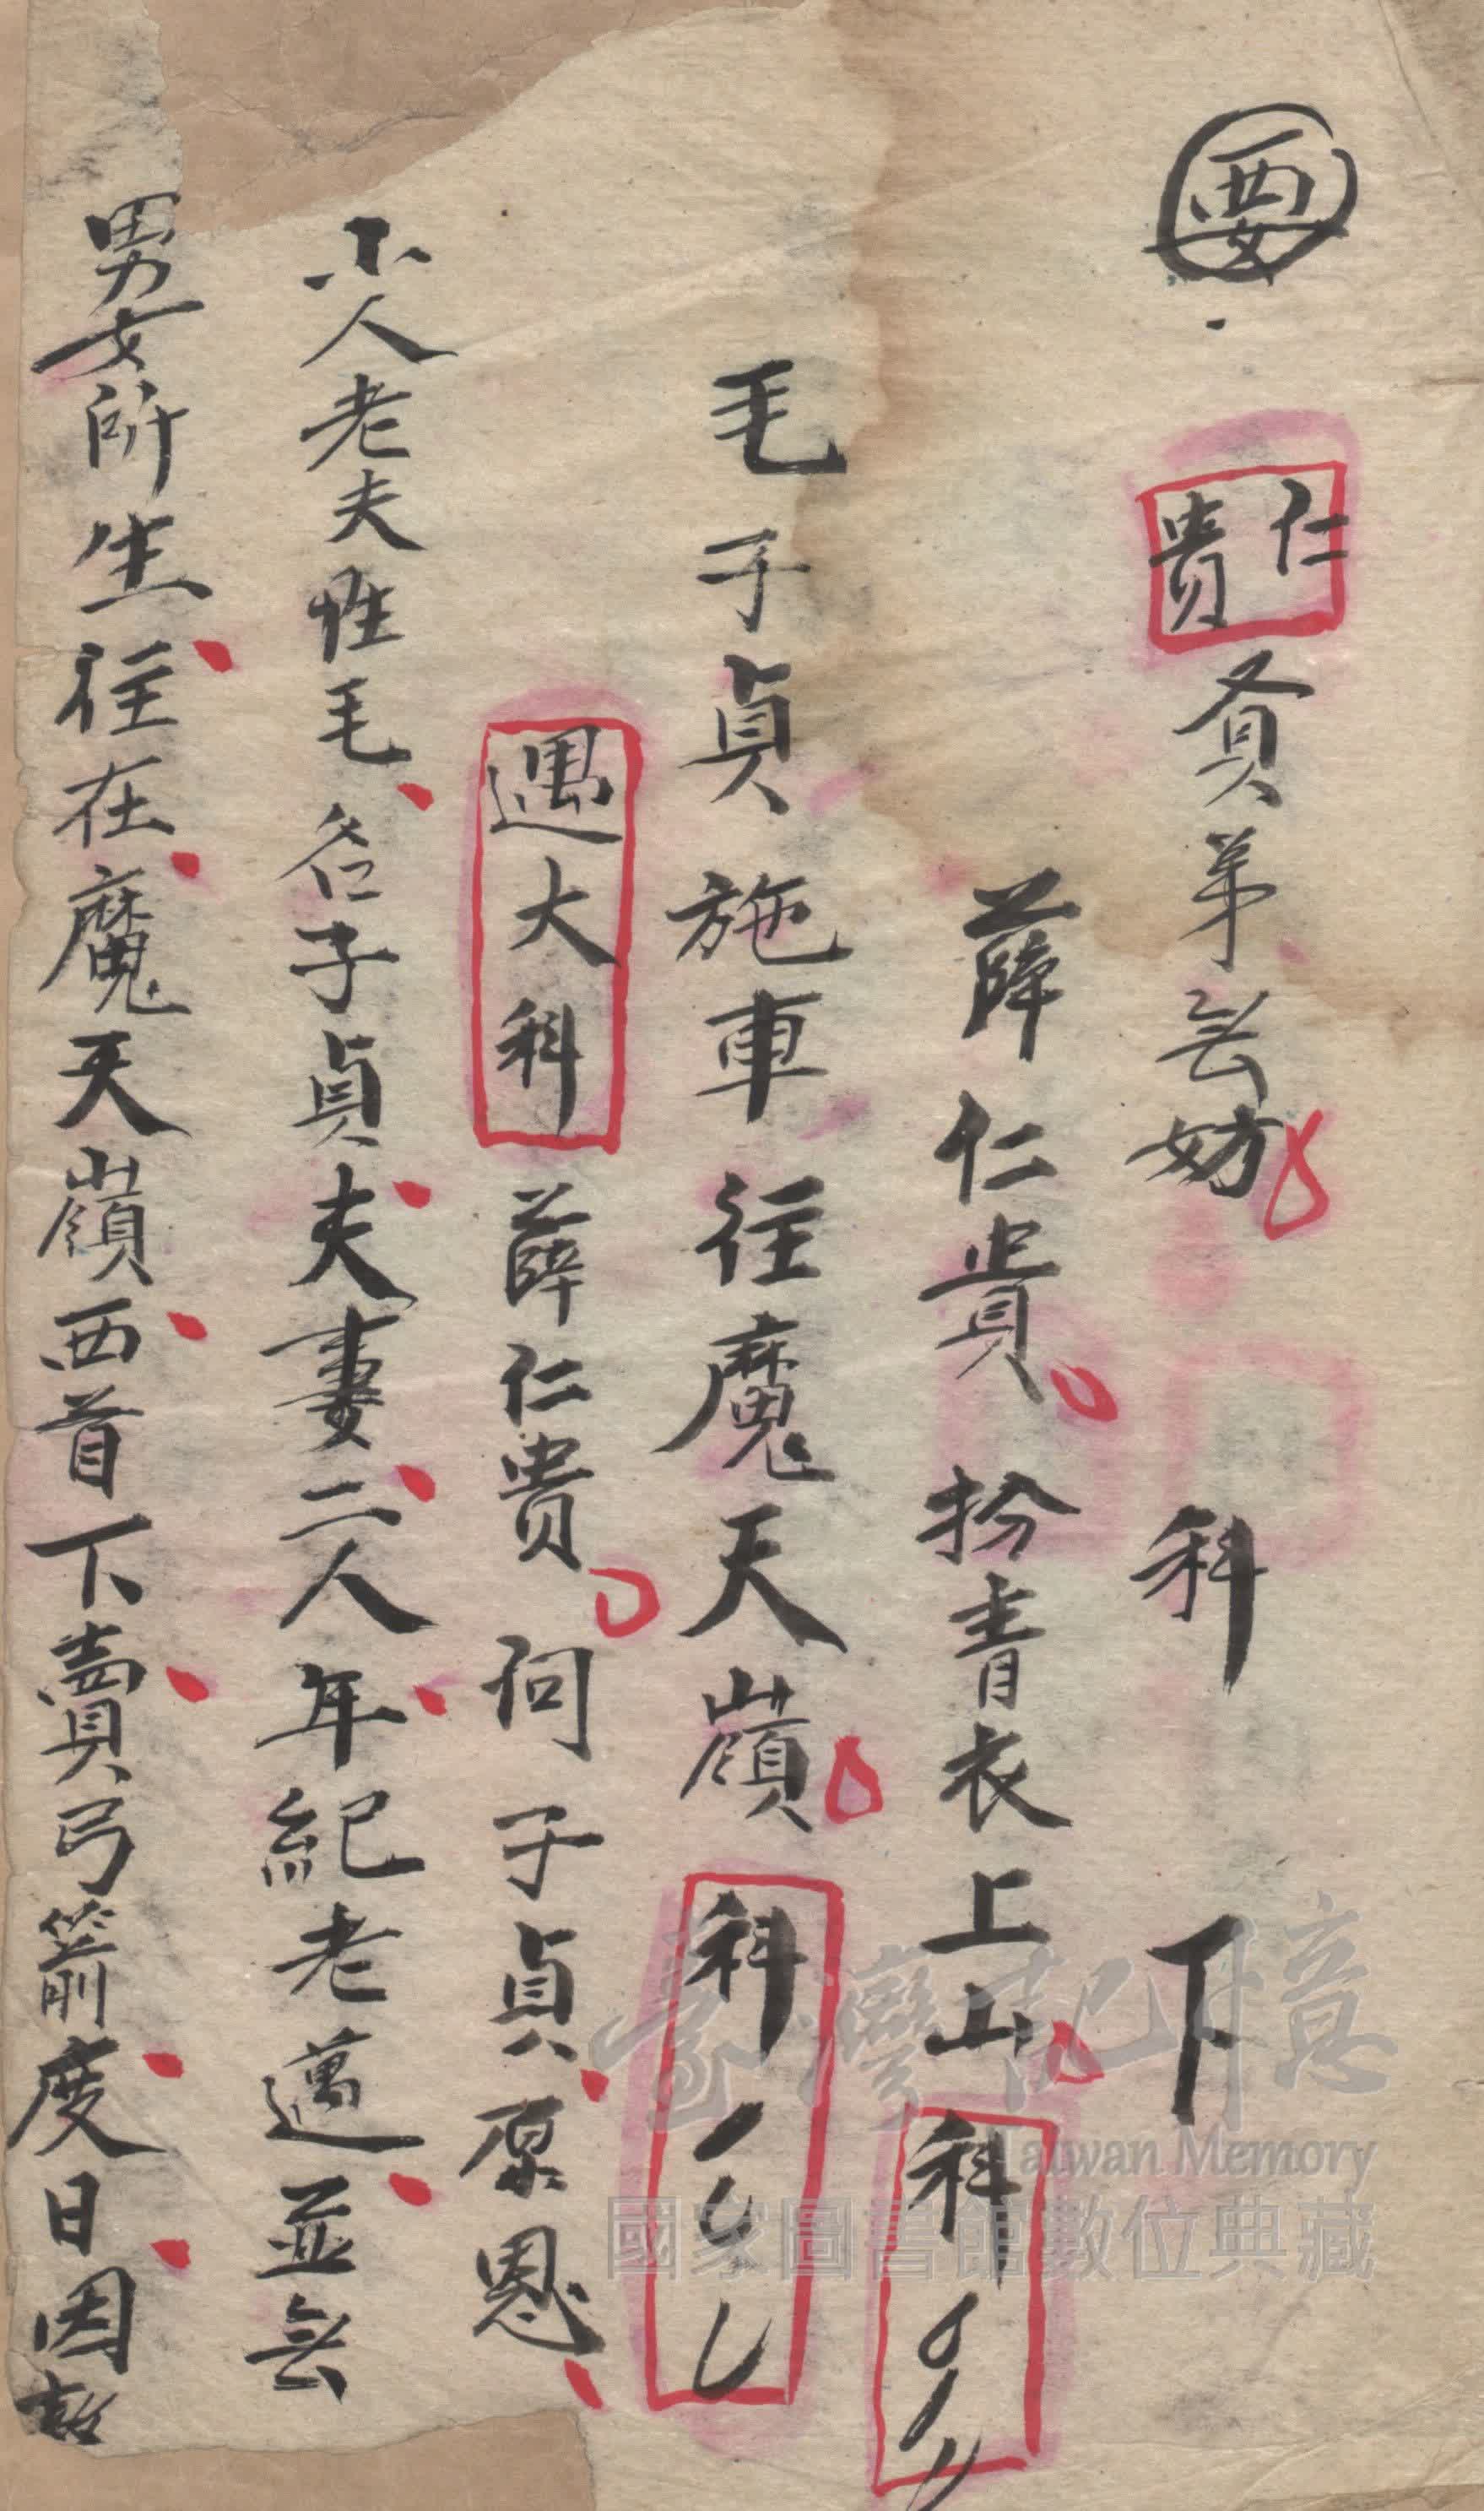 要
仁貴 賢弟無妨 科 下
薛仁貴 扮青衣上山 科
毛子貞 施車往魔天嶺 科
遇大科 薛仁貴 问子貞原恩
小人老夫性毛名子貞夫妻二人年紀老邁並無
男女所生往在魔天嶺西首下賣弓箭度日因
臺灣記憶
Taiwan Memory
國家圖書館數位典藏